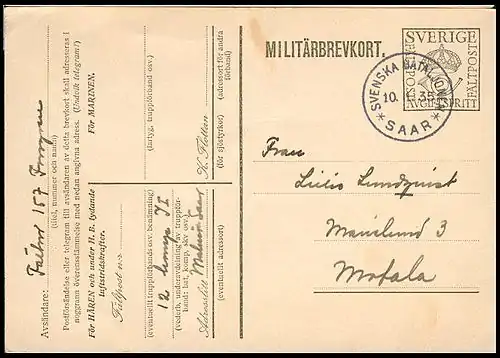 MILITÄRBREVKORT.
SVERIGE
FÄLTPOST
FÄLTPOST
AVGIFTSFRITT
SVENSKA BATALJONEN
10. 1. 35
* SAAR *
Fran
Lilio Lundquist
3
Motala
Avsändare: 157
(titel, nummer och namn)
Postförsändelse eller telegram till avsändaren av detta brevkort skall adresseras i
noggrann överensstämmelse med nedan angivna adress. (Undvik telegram!)
För HÄREN och under H. B. lydande
luftstridskrafter.
Fältpost n:o
12 komp I I
(eventuellt truppförbands osv. benämning)
(vederb. underavdelning av truppför-
band: batt, komp, skv osv.)
Adressort Malmö Saar
(eventuellt adressort)
För MARINEN.
(fartyg, truppförband osv.)
K. Flottan
(för sjöstyrkor)
(adressort för andra
förband)